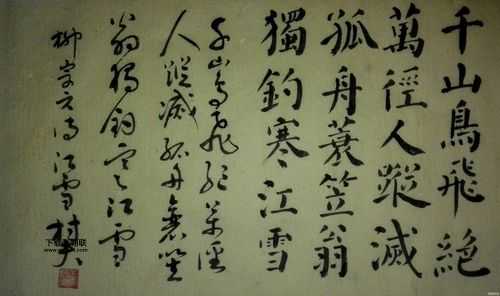 千山鳥飛絕
萬徑人蹤滅
孤舟蓑笠翁
獨釣寒江雪
千山鳥飛絕萬徑
人蹤滅孤舟蓑笠
翁獨釣寒江雪
柳宗元詩江雪